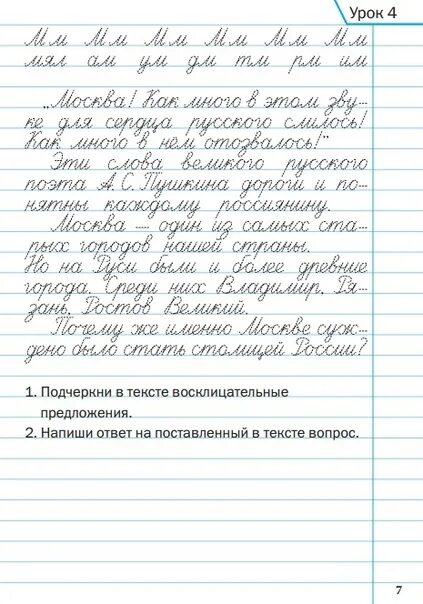 Урок 4
Мм Мм Мм Мм Мм Мм
мял ам ум дм тм рм им
„Москва! Как много в этом зву-
ке для сердца русского слилось!
Как много в нем отозвалось!"
Эти слова великого русского
поэта А. С. Пушкина дороги и по-
нятны каждому россиянину.
Москва — один из самых ста-
рых городов нашей страны.
Но на Руси были и более древние
города. Среди них Владимир, Ря-
зань, Ростов Великий.
Почему же именно Москве суж-
дено было стать столицей России?
1. Подчеркни в тексте восклицательные
предложения.
2. Напиши ответ на поставленный в тексте вопрос.
7